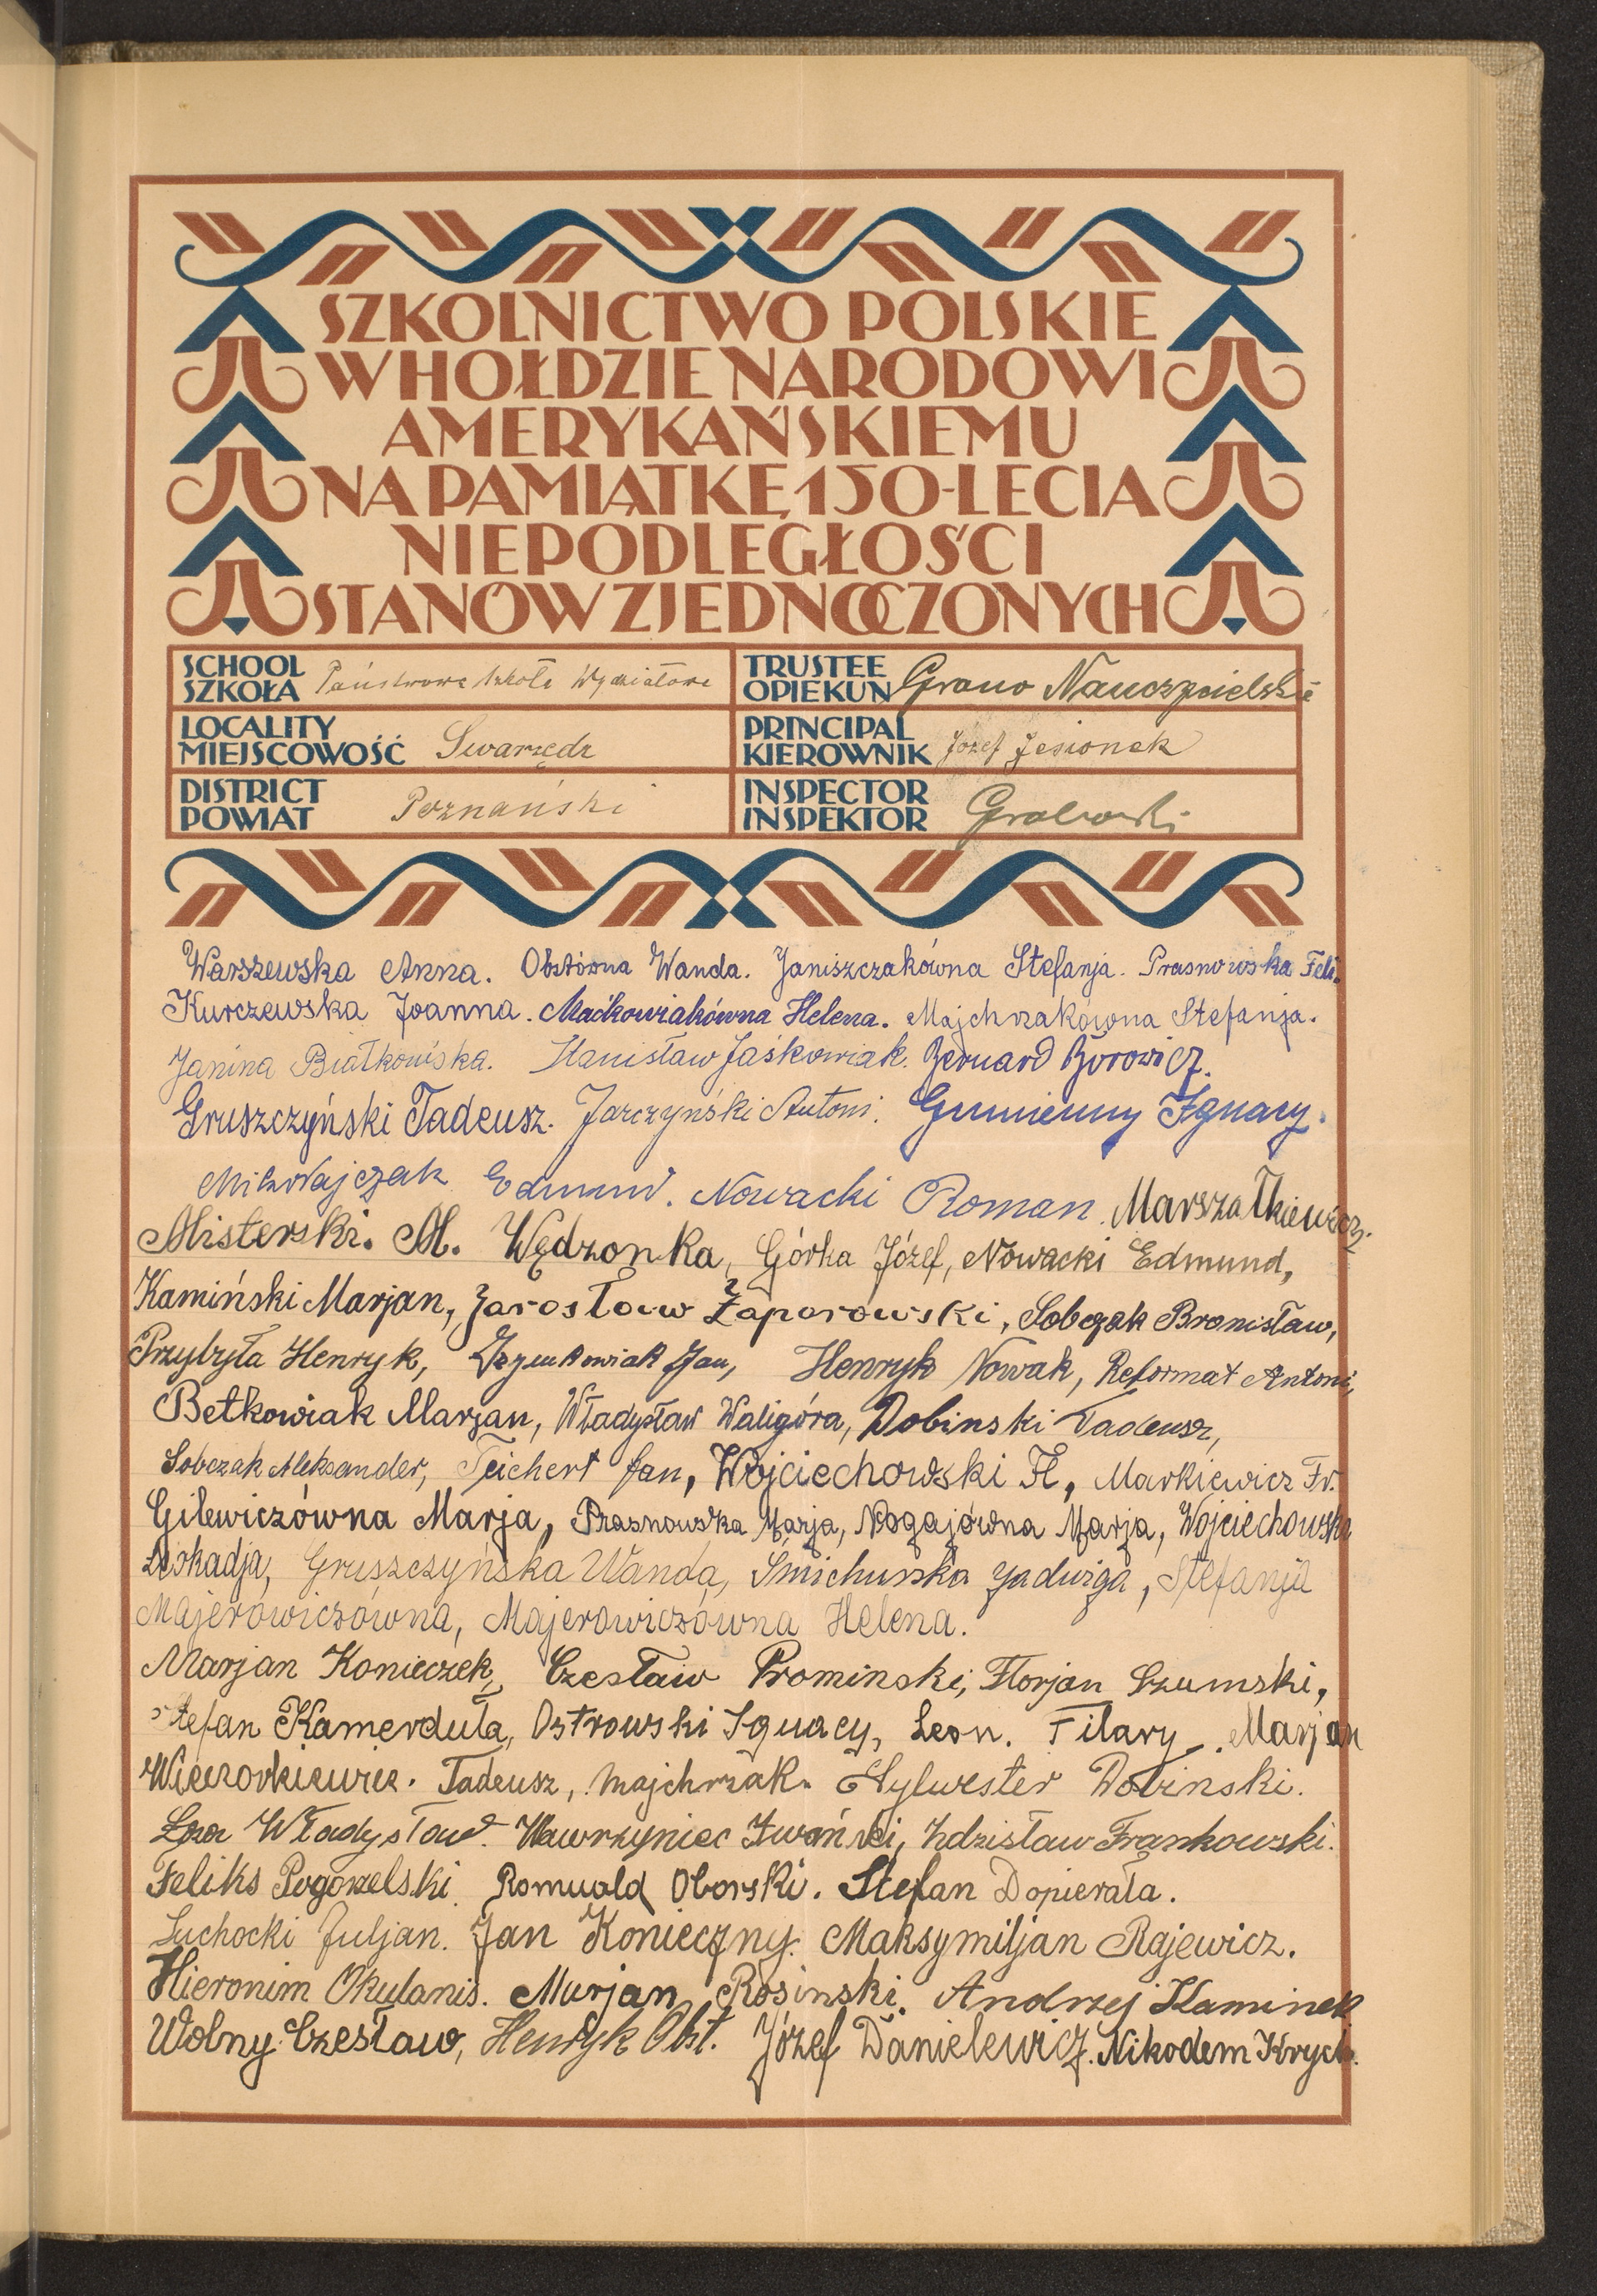 SZKOLNICTWO POLSKIE
W HOŁDZIE NARODOWI
AMERYKAŃSKIEMU
NA PAMIĄTKĘ 150-LECIA
NIEPODLEGŁOŚCI
STANÓW ZJEDNOCZONYCH
SCHOOL
SZKOŁA Państwowa Szkoła Wydziałowa
TRUSTEE
OPIEKUN Grono Nauczycielskie
LOCALITY
MIEJSCOWOŚĆ Swarzędz
PRINCIPAL
KIEROWNIK Józef Jesionek
DISTRICT
POWIAT Poznański
INSPECTOR
INSPEKTOR Grabowski
Warszewska Anna. Obstówna Wanda. Janiszczakówna Stefanja. Prasnowska Feli.
Kurczewska Joanna. Maćkowiakówna Helena. Majchrzakówna Stefanja.
Janina Białkowska. Stanisław Jaśkowiak. Bernard Borowicz.
Gruszczyński Tadeusz. Jarczyński Antoni. Gumienny Ignacy.
Mikołajczak Edmund. Nowacki Roman. Marszałkiewicz.
Misterski. M. Wędzonka, Górka Józef, Nowacki Edmund,
Kamiński Marjan, Jarosław Żaporowski, Sobczak Bronisław,
Przybyła Henryk, Szymkowiak Jan, Henryk Nowak, Reformat Antoni,
Betkowiak Marjan, Władysław Waligóra, Dobinski Tadeusz,
Sobczak Aleksander, Teichert Jan, Wojciechowski Fl, Markiewicz Fr.
Gilewiczówna Marja, Prasnowska Marja, Nogajówna Marja, Wojciechowska
Leokadja, Gruszczyńska Wanda, Śmichurska Jadwiga, Stefanja
Majerowiczówna, Majerowiczówna Helena.
Marjan Konieczek, Czesław Prominski, Florjan Szumski,
Stefan Kamerduła, Ostrowski Ignacy, Leon. Filary. Marjan
Wieczorkiewicz. Tadeusz, Majchrzak. Sylwester Dobinski.
Władysław. Wawrzyniec Iwański, Zdzisław Frankowski.
Feliks Pogorzelski. Romuald Oborski. Stefan Dopierała.
Suchocki Juljan. Jan Konieczny. Maksymiljan Rajewicz.
Hieronim Okulanis. Marjan Rosinski. Andrzej Kaminek
Wolny Czesław, Henryk Obst. Józef Danielewicz. Nikodem Krych.